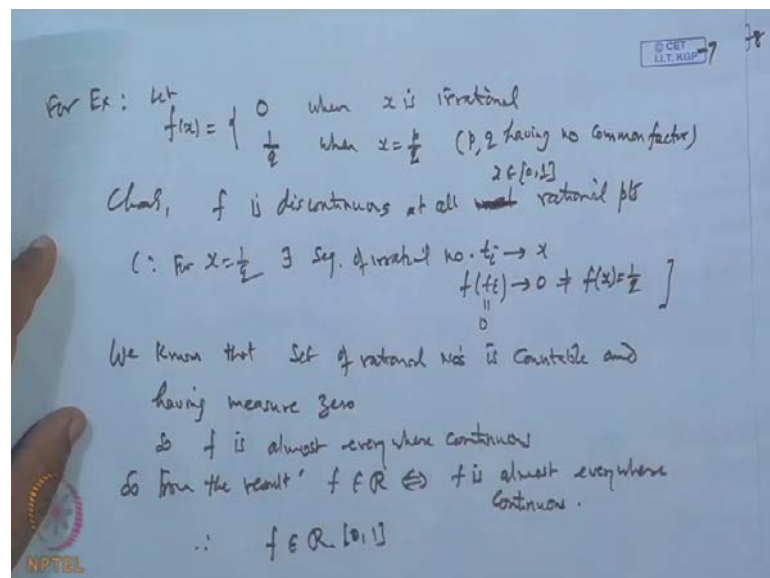 © CET
I.I.T. KGP
-7
For Ex : Let
f(x) = { 0 when x is irrational
1/q when x = p/q (p, q having no common factor)
x ∈ [0,1]
Clearly, f is discontinuous at all rational pts
(∵ For x = 1/2 ∃ Seq. of irrational no. ti → x
f(ti) → 0 ≠ f(x) = 1/2 ]
||
0
We know that set of rational Nos is Countable and
having measure zero
So f is almost everywhere continuous
So from the result' f ∈ R ⇔ f is almost everywhere
Continuous.
∴ f ∈ R [0,1]
NPTEL